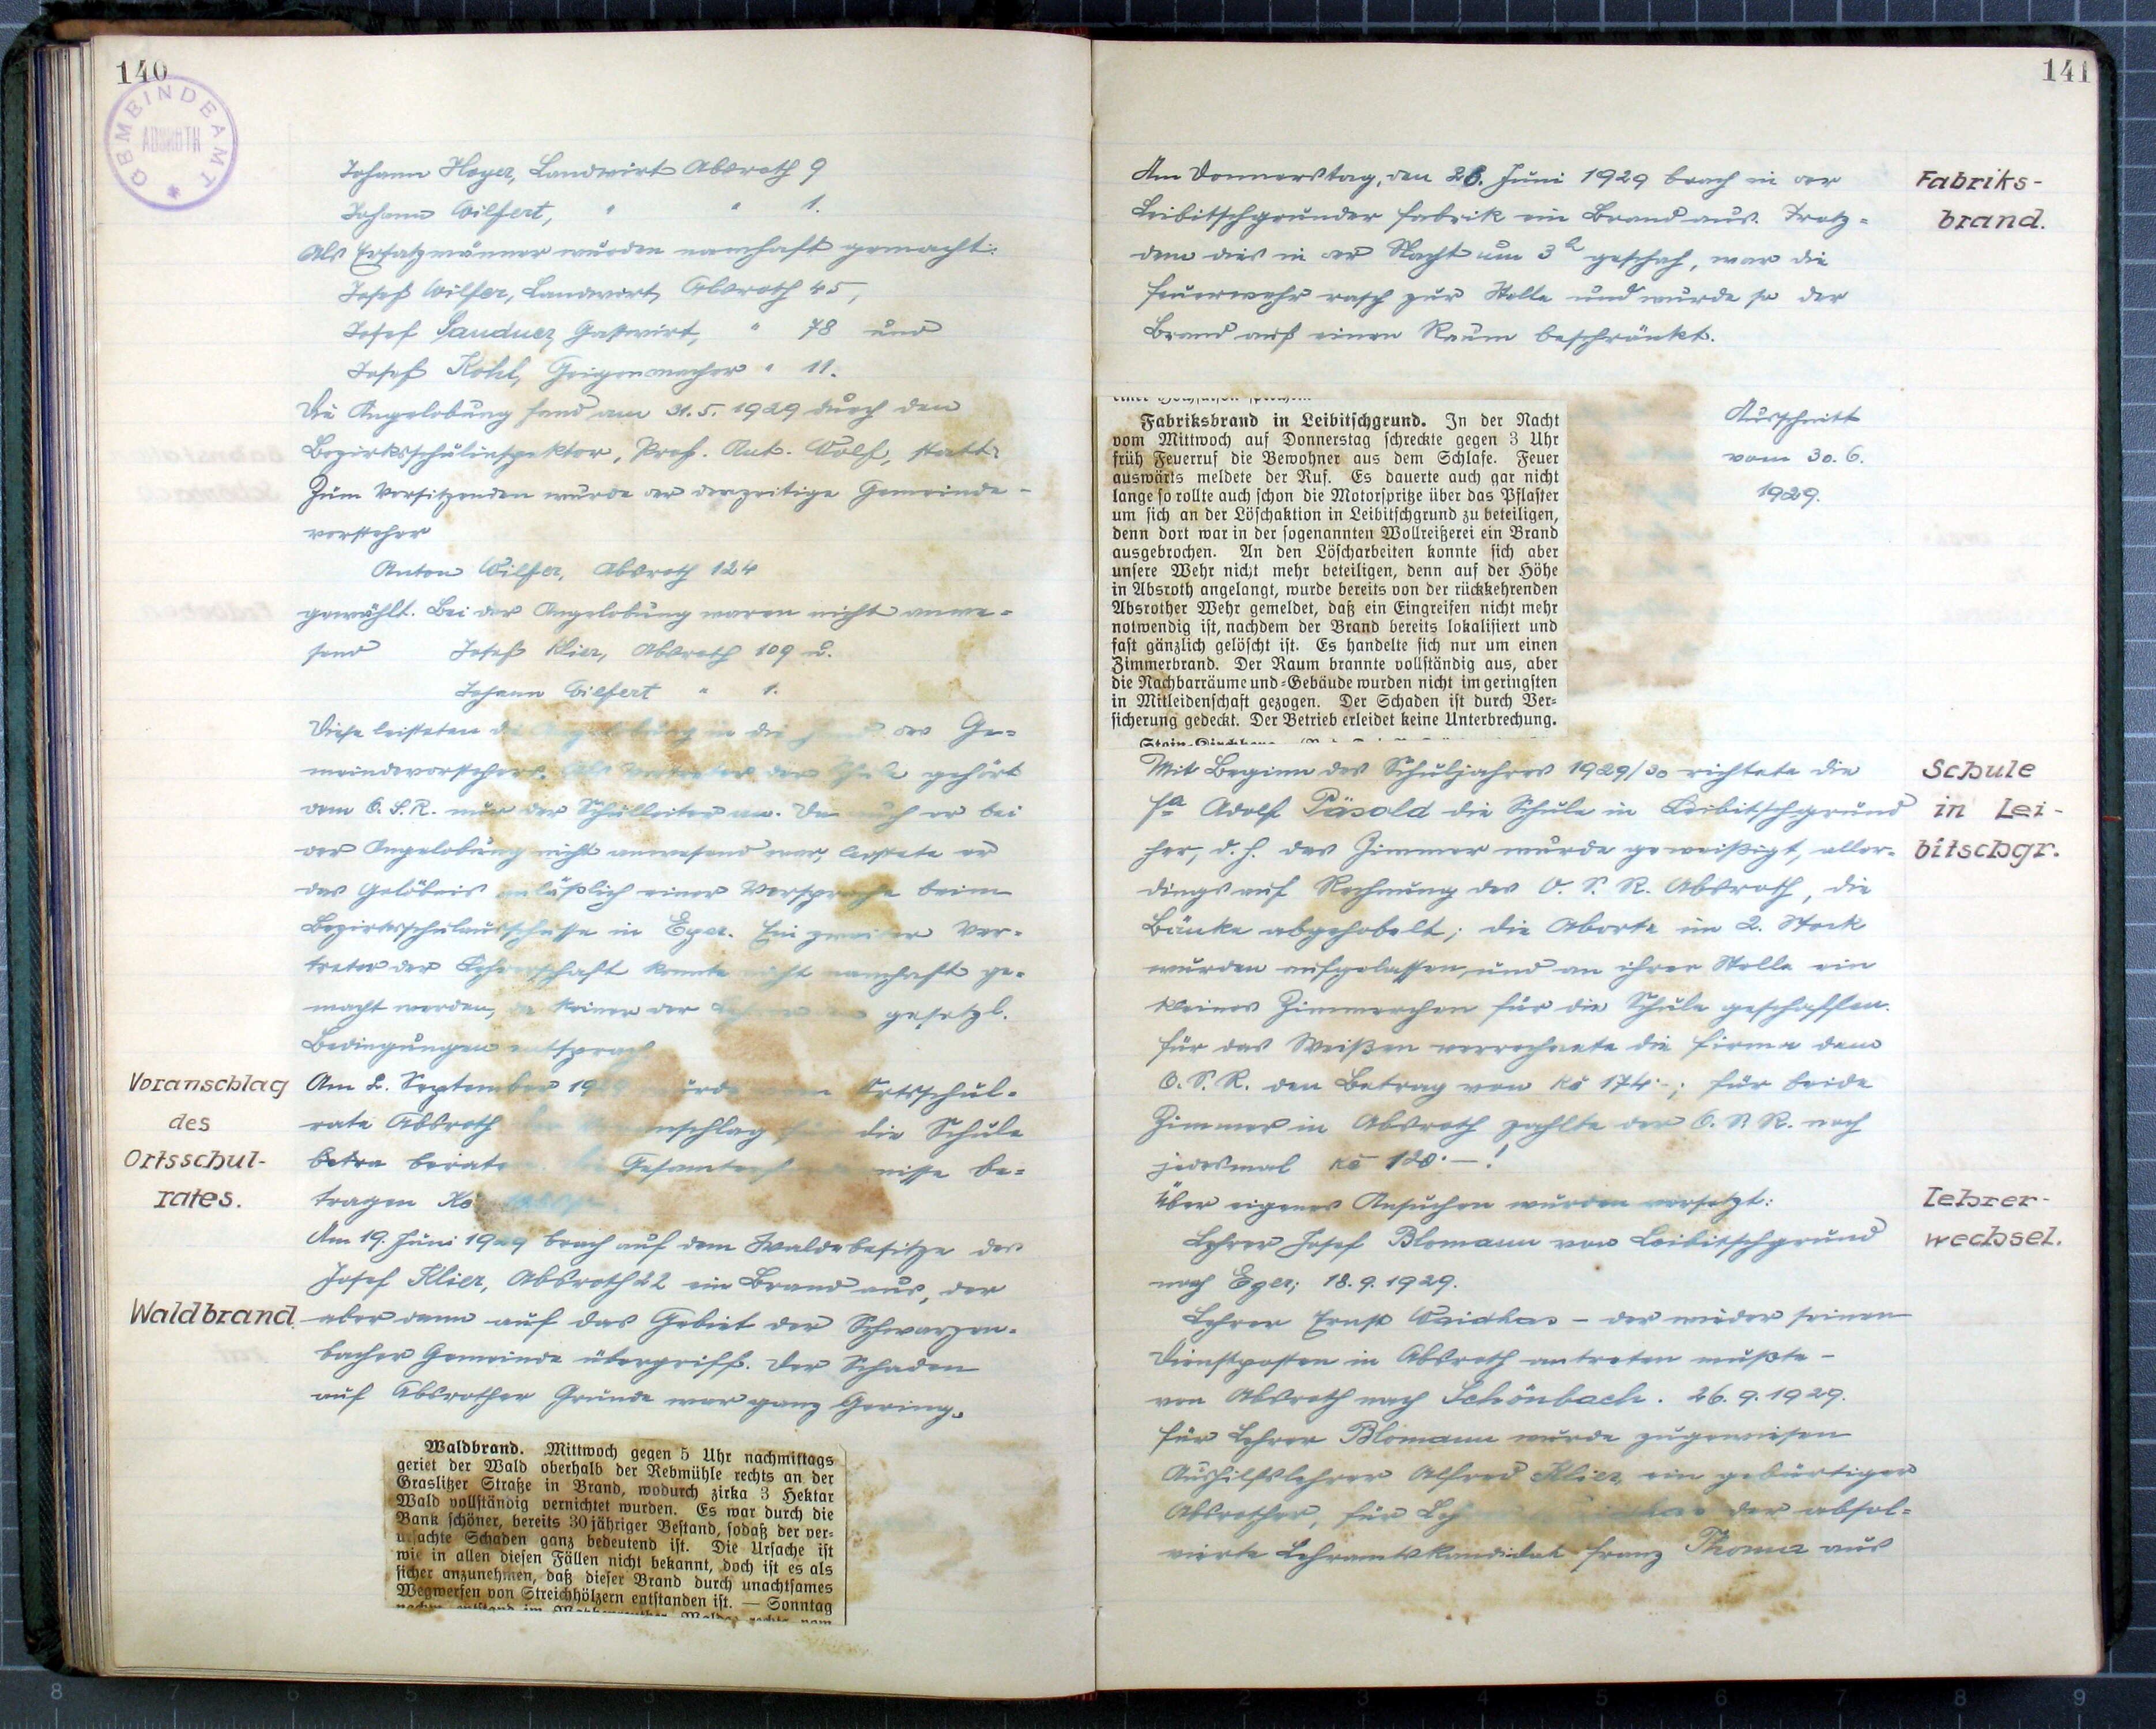 140
GEMEINDEAMT
ABSROTH
Johann Hoyer, Landwirt Absroth 9
Johann Wilfert, " " 1.
Als Ersatzmänner wurden namhaft gemacht:
Josef Wilfer, Landwirt, Absroth 45,
Josef Sandner, Gastwirt, " 78 und
Josef Kohl, Geigenmacher " 11.
Die Angelobung fand am 31.5.1929 durch den
Bezirksschulinspektor, Prof. Ant. Wolf, statt.
Zum Vorsitzenden wurde der derzeitige Gemeinde-
vorsteher
Anton Wilfer, Absroth 124
gewählt. Bei der Angelobung waren nicht anwe-
send Josef Klier, Absroth 109 u.
Johann Wilfert " 1.
Diese leisteten die Angelobung in die Hand des Ge-
meindevorstehers. Als Vertreter der Schule gehört
dem O.S.R. nur der Schulleiter an. Da auch er bei
der Angelobung nicht anwesend war, leistete er
das Gelöbnis anläßlich einer Vorsprache beim
Bezirksschulausschusse in Eger. Ein zweiter Ver-
treter der Lehrerschaft konnte nicht namhaft ge-
macht werden, da keiner der Lehrer den gesetzl.
Bedingungen entsprach.
Voranschlag
des
Ortsschul-
rates.
Am 2. September 1929 wurde vom Ortsschul-
rate Absroth der Voranschlag für die Schule
betra beraten. Die Gesamterfordernisse be-
tragen Kč
Am 19. Juni 1929 brach auf dem Waldbesitze des
Josef Klier, Absroth 22 ein Brand aus, der
Waldbrand.
aber dann auf das Gebiet der Schwarzen-
bacher Gemeinde übergriff. Der Schaden
auf Absrother Grunde war ganz Gering.
Waldbrand. Mittwoch gegen 5 Uhr nachmittags
geriet der Wald oberhalb der Rebmühle rechts an der
Graslitzer Straße in Brand, wodurch zirka 3 Hektar
Wald vollständig vernichtet wurden. Es war durch die
Bank schöner, bereits 30 jähriger Bestand, sodaß der ver-
ursachte Schaden ganz bedeutend ist. Die Ursache ist
wie in allen diesen Fällen nicht bekannt, doch ist es als
sicher anzunehmen, daß dieser Brand durch unachtsames
Wegwerfen von Streichhölzern entstanden ist. — Sonntag
141
Am Donnerstag, den 26. Juni 1929 brach in der
Leibitschgrunder Fabrik ein Brand aus. Trotz-
dem dies in der Nacht um 3h geschah, war die
Feuerwehr rasch zur Stelle und wurde so der
Brand auf einen Raum beschränkt.
Fabriks-
brand.
Fabriksbrand in Leibitschgrund. In der Nacht
vom Mittwoch auf Donnerstag schreckte gegen 3 Uhr
früh Feuerruf die Bewohner aus dem Schlafe. Feuer
auswärts meldete der Ruf. Es dauerte auch gar nicht
lange so rollte auch schon die Motorspritze über das Pflaster
um sich an der Löschaktion in Leibitschgrund zu beteiligen,
denn dort war in der sogenannten Wollreißerei ein Brand
ausgebrochen. An den Löscharbeiten konnte sich aber
unsere Wehr nicht mehr beteiligen, denn auf der Höhe
in Absroth angelangt, wurde bereits von der rückkehrenden
Absrother Wehr gemeldet, daß ein Eingreifen nicht mehr
notwendig ist, nachdem der Brand bereits lokalisiert und
fast gänzlich gelöscht ist. Es handelte sich nur um einen
Zimmerbrand. Der Raum brannte vollständig aus, aber
die Nachbarräume und-Gebäude wurden nicht im geringsten
in Mitleidenschaft gezogen. Der Schaden ist durch Ver-
sicherung gedeckt. Der Betrieb erleidet keine Unterbrechung.
Ausschnitt
vom 30. 6.
1929.
Mit Beginn des Schuljahres 1929/30 richtete die
Fa Adolf Päsold die Schule in Leibitschgrund
her, d.h. das Zimmer wurde geweißigt, aller-
dings auf Rechnung des O.S.R. Absroth, die
Bänke abgehobelt; die Aborte im 2. Stock
wurden aufgelassen, und an ihrer Stelle ein
kleines Zimmerchen für die Schule geschaffen.
Für das Weißen verrechnete die Firma dem
O.S.R. den Betrag von Kč 174·-; für beide
Zimmer in Absroth zahlte der O.S.R. noch
jedesmal Kč 120·—!
Schule
in Lei-
bitschgr.
Über eigenes Ansuchen wurden versetzt:
Lehrer Josef Blomann von Leibitschgrund
nach Eger; 18.9.1929.
Lehrer-
wechsel.
Lehrer Ernst Waidhas - der wieder seinen
Dienstposten in Absroth antreten mußte -
von Absroth nach Schönbach. 26.9.1929.
Für Lehrer Blomann wurde zugewiesen
Aushilfslehrer Alfred Klier, ein gebürtiger
Absrother, für Lehrer Waidhas der absol-
vierte Lehramtskandidat Franz Thoma aus